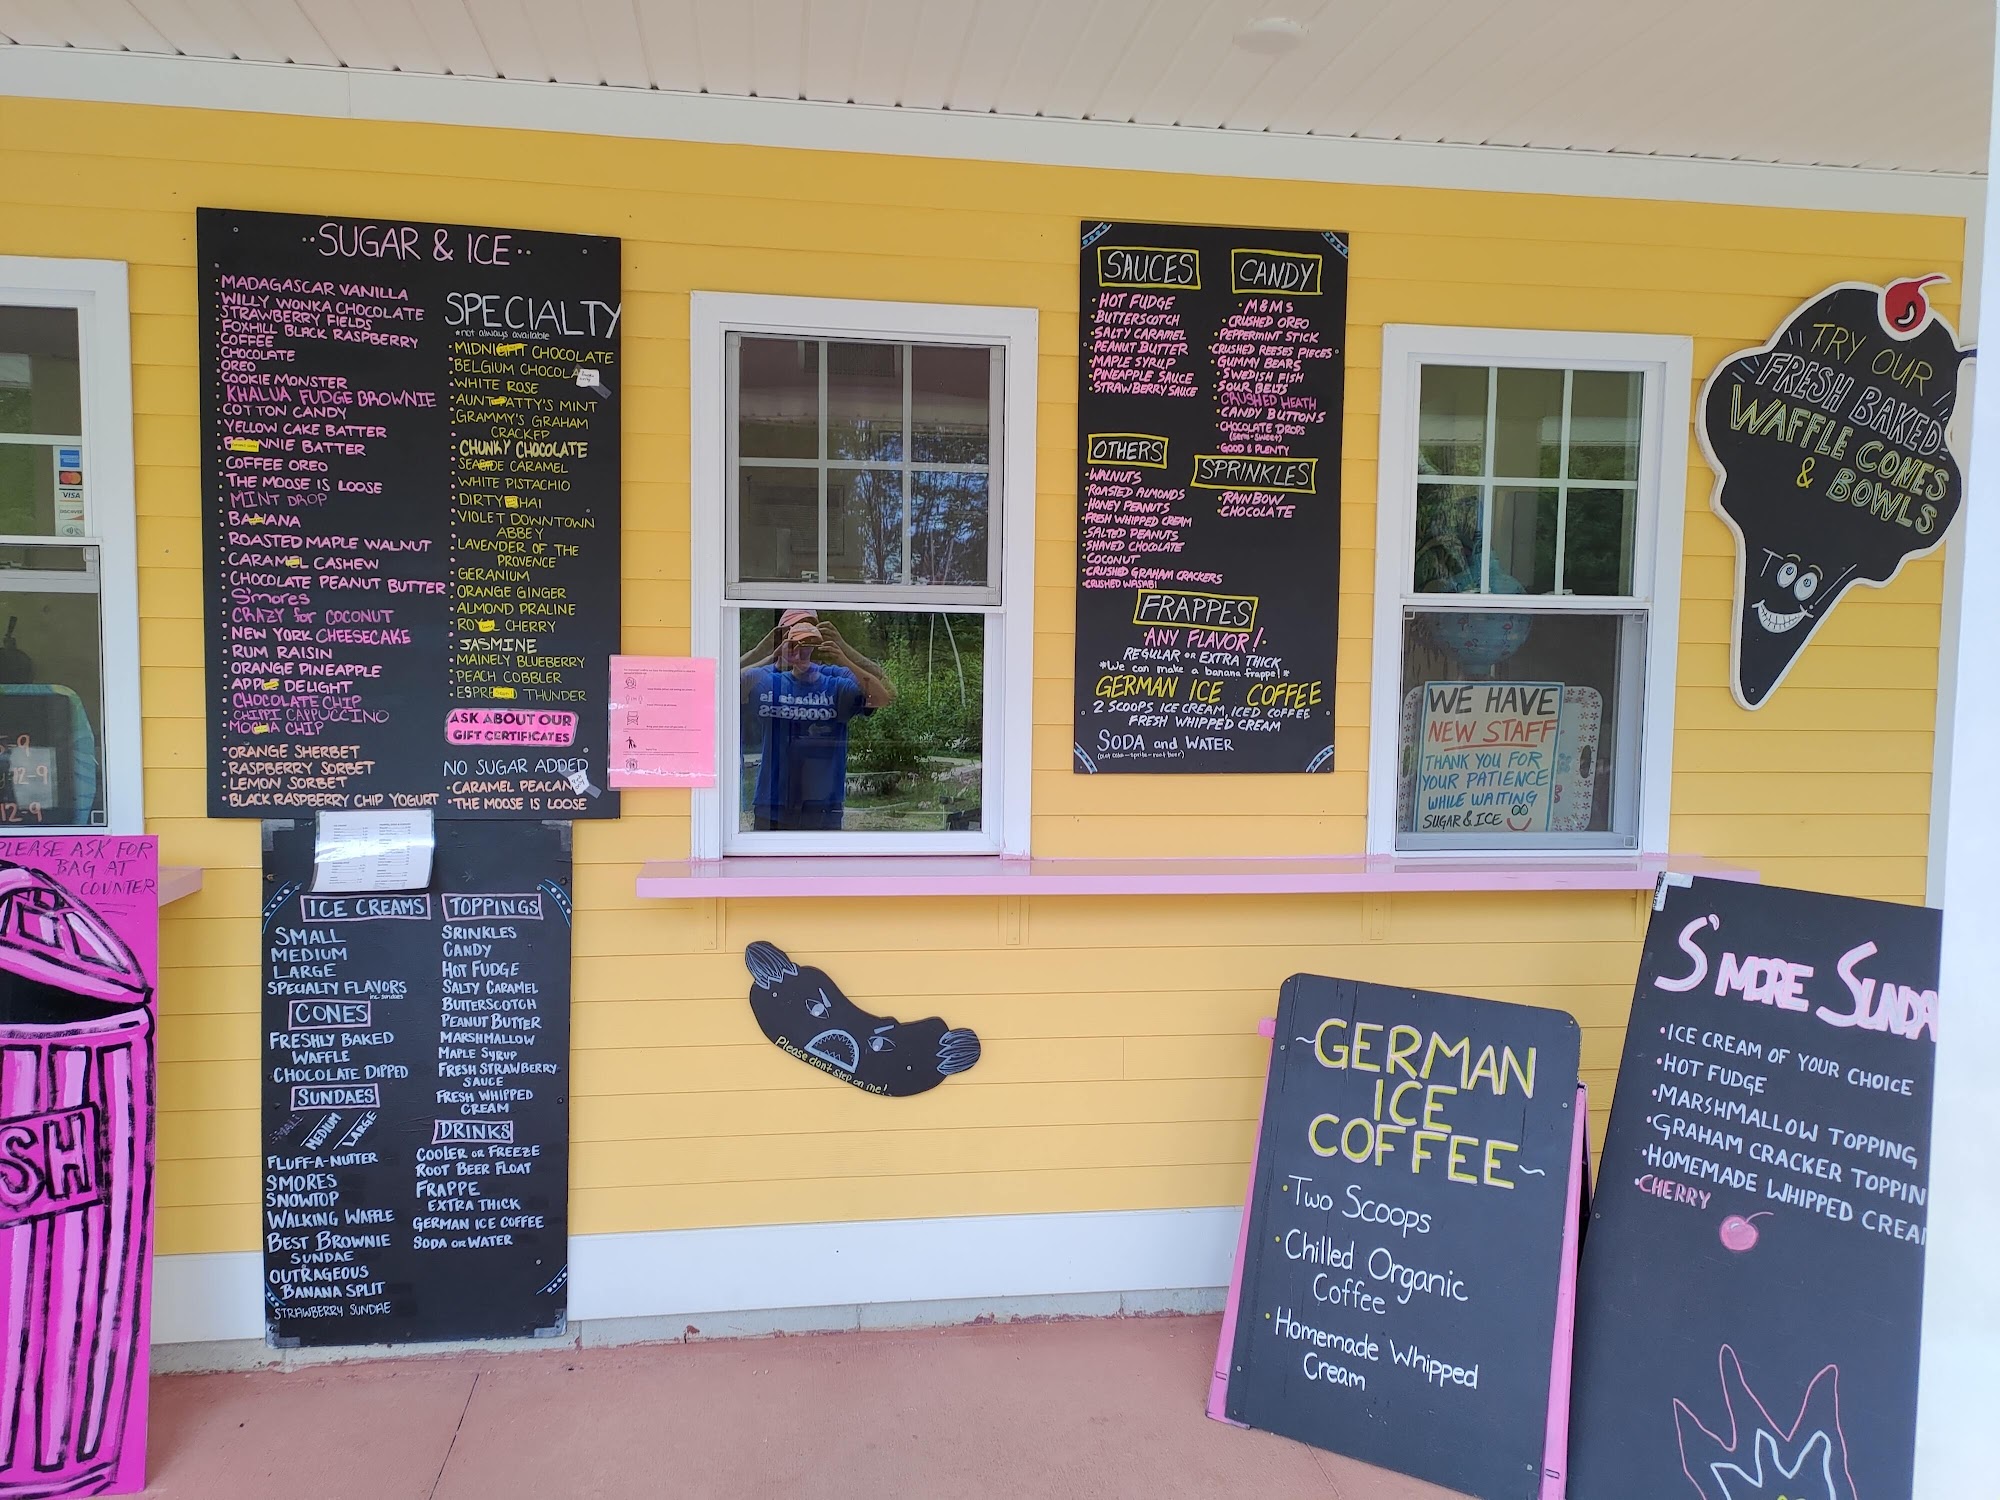 SUGAR & ICE
MADAGASCAR VANILLA
WILLY WONKA CHOCOLATE
STRAWBERRY FIELDS
FOXHILL BLACK RASPBERRY
COFFEE
CHOCOLATE
OREO
COOKIE MONSTER
KHALUA FUDGE BROWNIE
COTTON CANDY
YELLOW CAKE BATTER
BATTER
COFFEE OREO
THE MOOSE IS LOOSE
MINT DROP
BANANA
ROASTED MAPLE WALNUT
CARAMEL CASHEW
CHOCOLATE PEANUT BUTTER
S'mores
CRAZY for COCONUT
NEW YORK CHEESECAKE
RUM RAISIN
ORANGE PINEAPPLE
APPLE DELIGHT
CHOCOLATE CHIP
CHIPPI CAPPUCCINO
MOCHA CHIP
ORANGE SHERBET
RASPBERRY SORBET
LEMON SORBET
BLACK RASPBERRY CHIP YOGURT
SPECIALTY
*not always available
MIDNIGHT CHOCOLATE
BELGIUM
WHITE ROSE
AUNT MINT
GRAMMY'S GRAHAM
CRACKER
CHUNKY CHOCOLATE
CARAMEL
WHITE PISTACHIO
DIRTY
VIOLET DOWNTOWN
ABBEY
LAVENDER OF THE
PROVENCE
GERANIUM
ORANGE GINGER
ALMOND PRALINE
CHERRY
JASMINE
MAINELY BLUEBERRY
PEACH COBBLER
THUNDER
ASK ABOUT OUR
GIFT CERTIFICATES
NO SUGAR ADDED
CARAMEL PEACAN
THE MOOSE IS LOOSE
ICE CREAMS
SMALL
MEDIUM
LARGE
SPECIALTY FLAVORS
inc. sundaes
CONES
FRESHLY BAKED
WAFFLE
CHOCOLATE DIPPED
SUNDAES
SMALL MEDIUM LARGE
FLUFF-A-NUTTER
SMORES
SNOWTOP
WALKING WAFFLE
BEST BROWNIE
SUNDAE
OUTRAGEOUS
BANANA SPLIT
STRAWBERRY SUNDAE
TOPPINGS
SRINKLES
CANDY
HOT FUDGE
SALTY CARAMEL
BUTTERSCOTCH
PEANUT BUTTER
MARSHMALLOW
MAPLE SYRUP
FRESH STRAWBERRY
SAUCE
FRESH WHIPPED
CREAM
DRINKS
COOLER OR FREEZE
ROOT BEER FLOAT
FRAPPE
EXTRA THICK
GERMAN ICE COFFEE
SODA OR WATER
PLEASE ASK FOR
BAG AT
COUNTER
SH
5-9
12-9
12-9
VISA
DISCOVER
Please don't step on me!
SAUCES
HOT FUDGE
BUTTERSCOTCH
SALTY CARAMEL
PEANUT BUTTER
MAPLE SYRUP
PINEAPPLE SAUCE
STRAWBERRY SAUCE
CANDY
M&MS
CRUSHED OREO
PEPPERMINT STICK
CRUSHED REESES PIECES
GUMMY BEARS
SWEDISH FISH
SOUR BELTS
CRUSHED HEATH
CANDY BUTTONS
CHOCOLATE DROPS
(semi-sweet)
GOOD & PLENTY
OTHERS
WALNUTS
ROASTED ALMONDS
HONEY PEANUTS
FRESH WHIPPED CREAM
SALTED PEANUTS
SHAVED CHOCOLATE
COCONUT
CRUSHED GRAHAM CRACKERS
CRUSHED WASABI
SPRINKLES
RAINBOW
CHOCOLATE
FRAPPES
ANY FLAVOR!
REGULAR OR EXTRA THICK
*We can make a banana frappe!*
GERMAN ICE COFFEE
2 SCOOPS ICE CREAM, ICED COFFEE
FRESH WHIPPED CREAM
SODA and WATER
WE HAVE
NEW STAFF
THANK YOU FOR
YOUR PATIENCE
WHILE WAITING
SUGAR & ICE
TRY OUR
FRESH BAKED
WAFFLE CONES
& BOWLS
TOO!
~GERMAN
ICE
COFFEE~
Two Scoops
Chilled Organic
Coffee
Homemade Whipped
Cream
S'MORE SUNDA
ICE CREAM OF YOUR CHOICE
HOT FUDGE
MARSHMALLOW TOPPING
GRAHAM CRACKER TOPPIN
HOMEMADE WHIPPED CREA
CHERRY